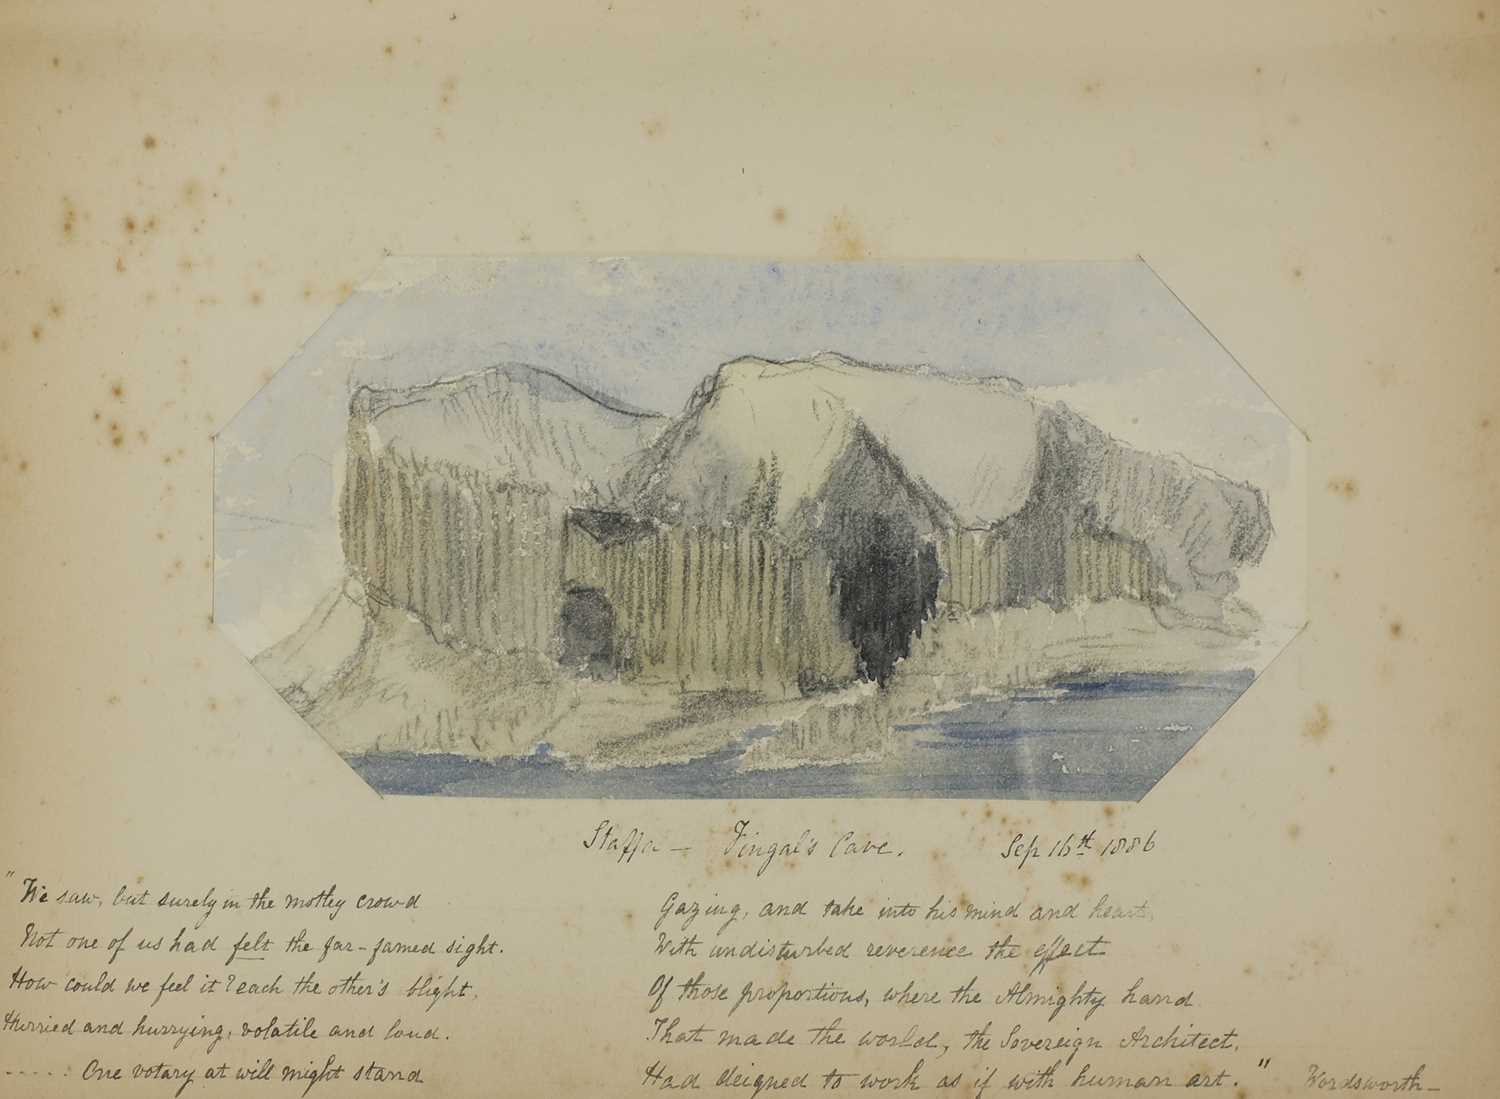 Staffa – Fingal's Cave. Sep 16th 1886
"We saw, but surely in the motley crowd
Not one of us had felt the far-famed sight.
How could we feel it? each the other's blight,
Hurried and hurrying, volatile and loud.
..... One votary at will might stand
Gazing, and take into his mind and heart,
With undisturbed reverence the effect
Of those proportions, where the Almighty hand
That made the world, the Sovereign Architect,
Had deigned to work as if with human art." Wordsworth–